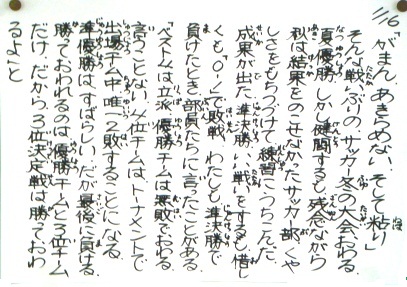 11/16
「がまん あきらめない そして 粘り」
そんな戦いぶりのサッカー冬の大会おわる。
夏、優勝。しかし健闘するも残念ながら
秋は結果をのこせなかったサッカー部。くや
しさをもちつづけて練習にうちこんだ。
成果が出た。準決勝、いい戦いをするも惜し
くも「0-1」で敗戦。わたしも準決勝で
負けたとき、部員たちに言ったことがある。
「ベスト4は立派。優勝チームは無敗でおわる。
言うことない。4位チームはトーナメントで
出場チーム中、唯一2敗することになる。
準優勝はすばらしい。だが最後に負ける。
勝っておわれるのは、優勝チームと3位チーム
だけ。だから、3位決定戦は勝っておわ
るよ」と